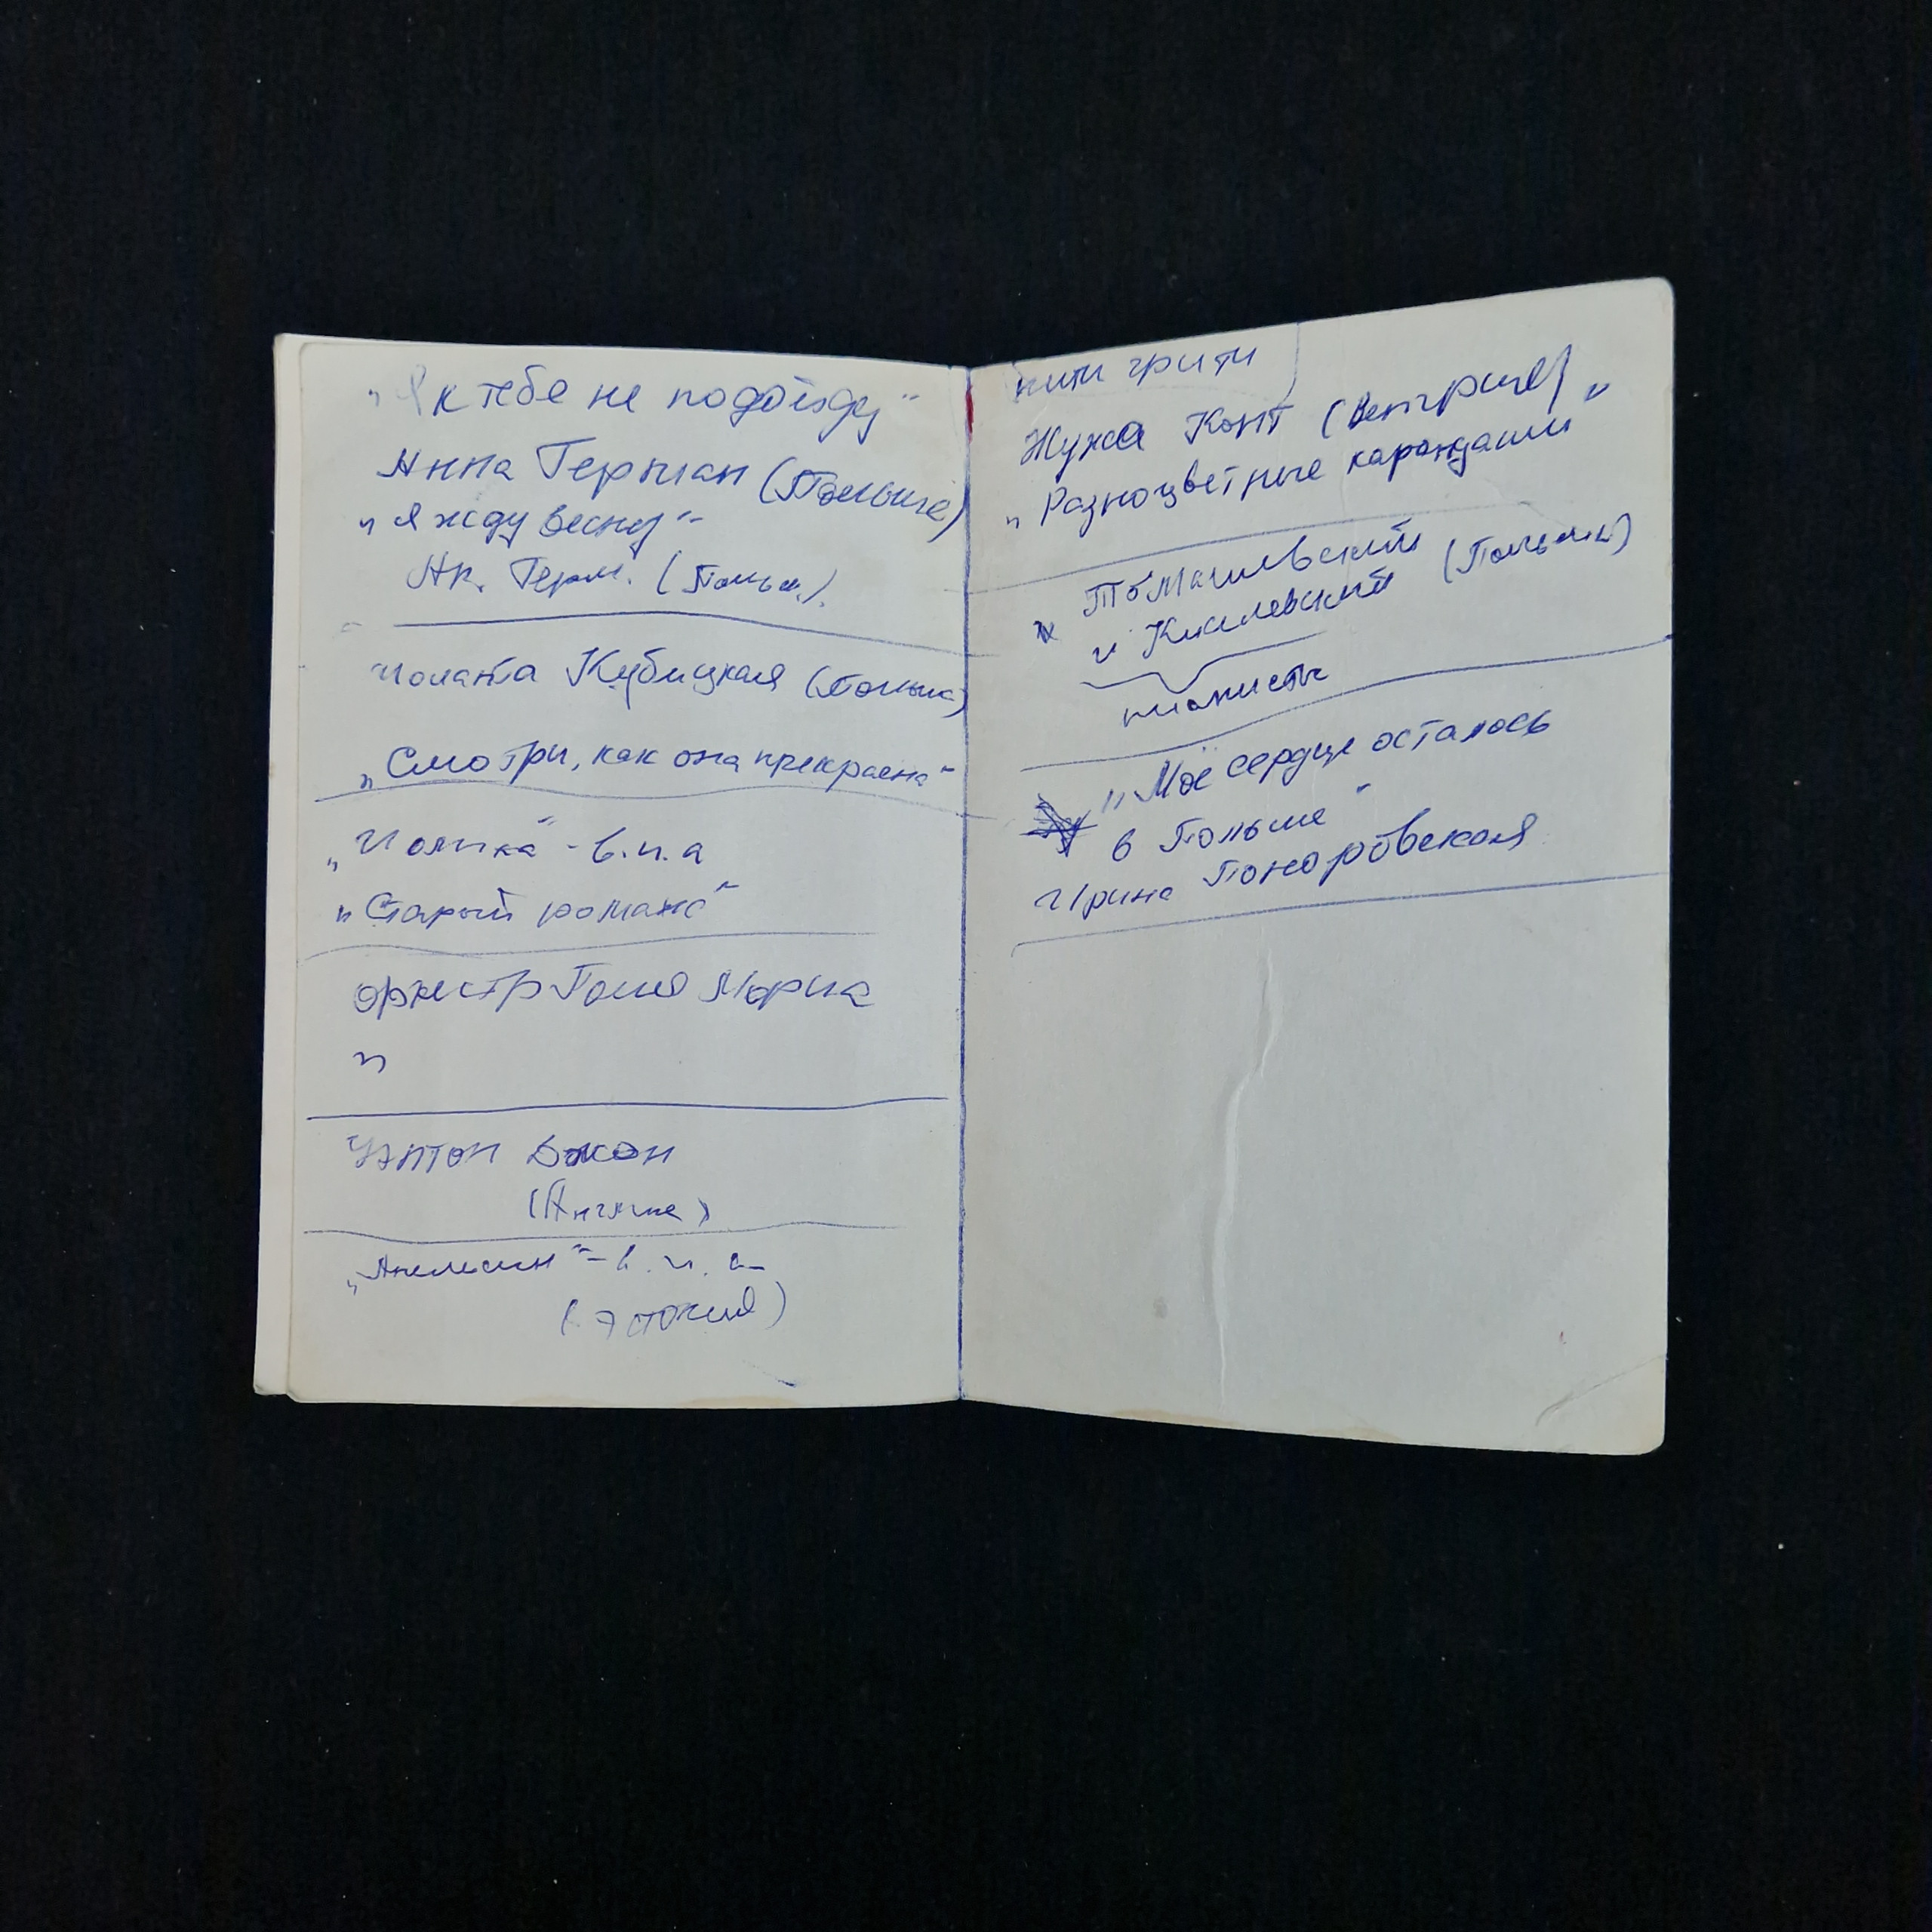 "Я к тебе не подойду"
Анна Герман (Польша)
"Я жду весну"
Ан. Герм. (Польш.).
Иоланта Кубицкая (Польша)
"Смотри, как она прекрасна"
"Иолика" - в.и.а
"Старый романс"
оркестр Поля Мориа
"
Уэлтон Джон
(Англия)
"Апельсин" - в.и.а
(Эстония)
нити грити
Жужа Конт (Венгрия)
"Разноцветные карандаши"
Томашевский
и Киселевский (Польша)
пианисты
"Моё сердце осталось
в Польше"
Ирина Понаровская